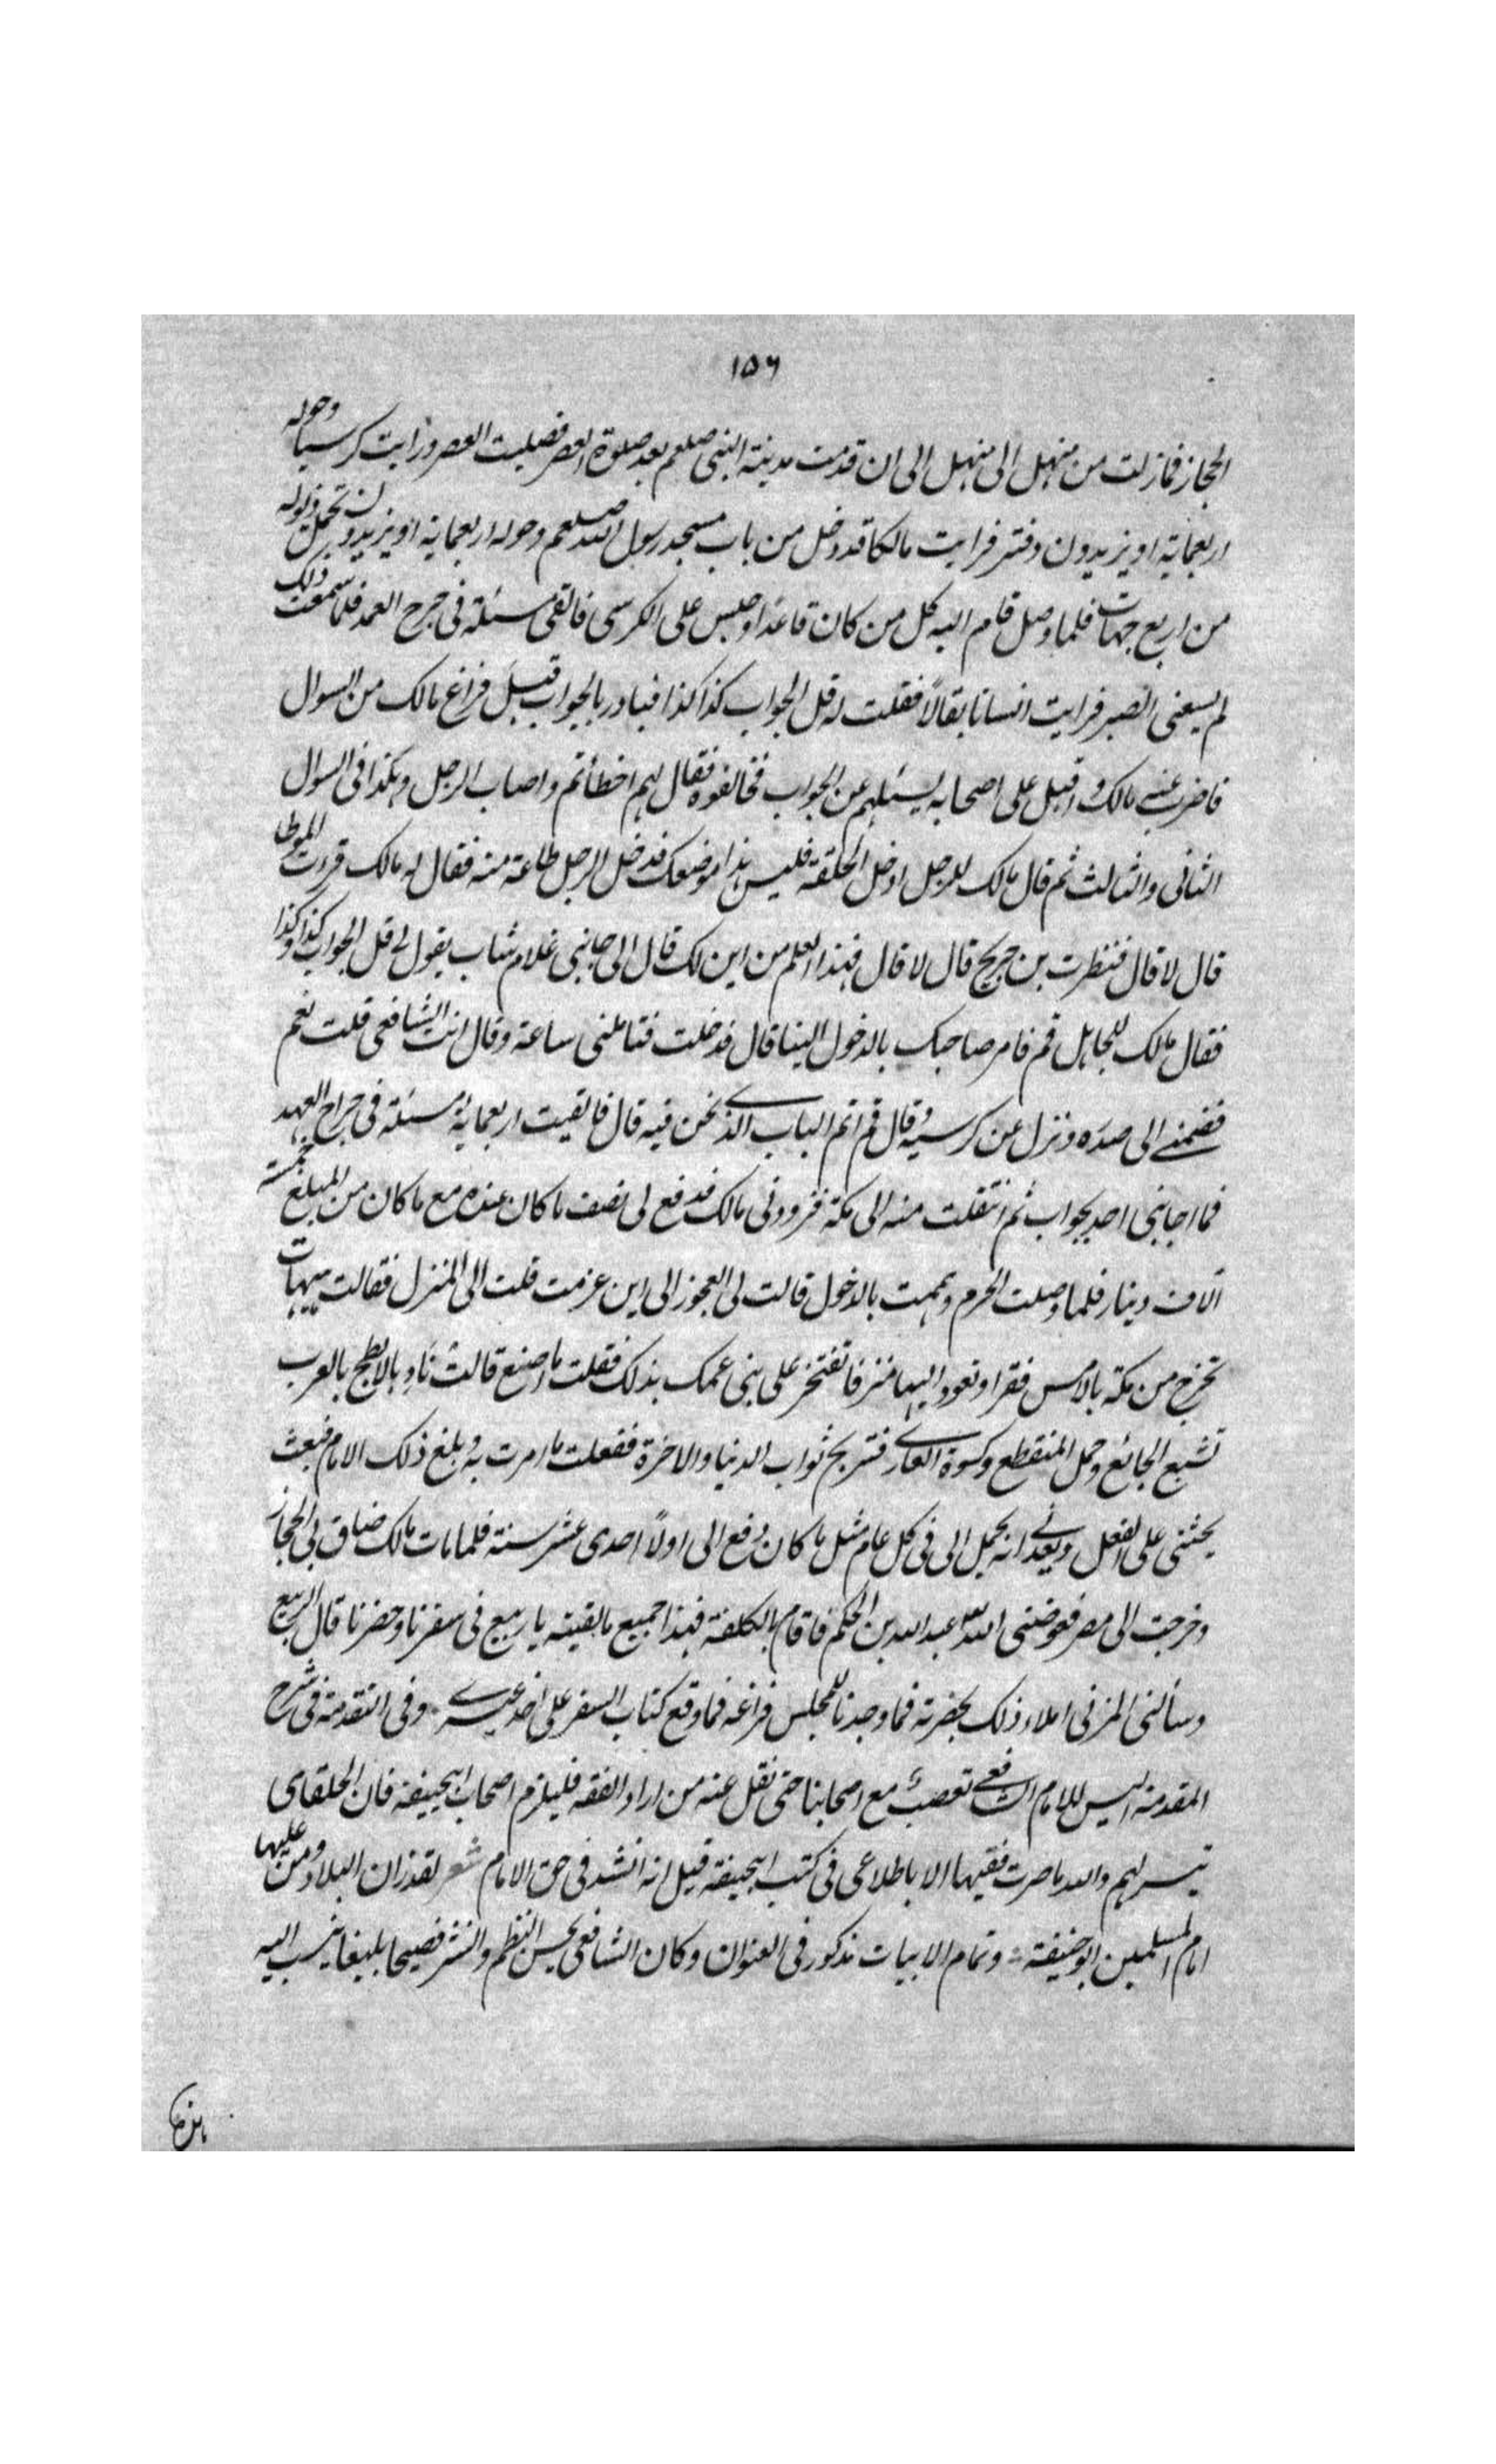 ١٥٦
الحجاز فمازلت من منهل الى منهل الى ان قدمت مدينة النبى صلعم بعد صلوة العصر فصليت العصر ورايت كرسيا وحوله
اربعماية او يزيدون دفتر فرايت مالكا قد دخل من باب مسجد رسول الله صلعم وحوله اربعماية او يزيدون تحمل ذيوله
من اربع جهات فلما وصل قام اليه كل من كان قاعدا وجلس على الكرسى فالقى مسئلة فى جرح العمد فلما سمعت ذلك
لم يسعنى الصبر فرايت انسانا بقالا فقلت له قل الجواب كذا كذا فبادر بالجواب قبل فراغ مالك من السوال
فاضرب عنه مالك واقبل على اصحابه يسئلهم عن الجواب فخالفوه فقال لهم اخطأتم واصاب الرجل وهكذا فى السوال
الثانى والثالث ثم قال مالك للرجل ادخل الحلقة فليس هذا موضعك فدخل الرجل طاعة منه فقال له مالك قرءت الموطا
قال لا قال فنظرت بن جريج قال لا قال فهذا العلم من اين لك قال الى جانبى غلام شاب يقول لى قل الجواب كذا وكذا
فقال مالك للجاهل قم فامر صاحبك بالدخول الينا قال فدخلت فتاملنى ساعة وقال انت الشافعى قلت نعم
فضمنى الى صدره ونزل عن كرسيه وقال قم اتم الباب الذى نحن فيه قال فالقيت اربعماية مسئلة فى جراح العمد
فما اجابنى احد بجواب ثم انتقلت منه الى مكة فزودنى مالك فدفع لى نصف ما كان عنده مع ما كان من المبلغ خمسة
آلاف دينار فلما وصلت الحرم وهممت بالدخول قالت لى العجوز الى اين عزمت قلت الى المنزل فقالت هيهات
تخرج من مكة بالامس فقرا وتعود اليها منزفا تفتخر على بنى عمك بذلك فقلت ما اصنع قالت ناد بالابطح بالعرب
تشبع الجائع وحمل المنقطع وكسوة العارى فتربح ثواب الدنيا والاخرة ففعلت ما امرت به وبلغ ذلك الامام فبعث
يحثنى على الفعل ويعدنى انه يحمل الى فى كل عام مثل ما كان دفع الى اولا احدى عشر سنة فلما مات مالك ضاق بى الحجاز
وخرجت الى مصر فعوضنى الله عبد الله بن الحكم فاقام بالكلفة فهذا جميع مالقيته يا ربيع فى سفرنا وحضرنا قال الربيع
وسألنى المزنى املاء ذلك بحضرته فما وجدنا للمجلس فراغه فما وقع كتاب السفر على احد غيرى وفى التقدمة فى شرح
المقدمة ليس للامام الشافعى تعصب مع اصحابنا حتى نقل عنه من اراد الفقه فليلزم اصحاب ابيحنيفة فان الحلقاى
تيسر لهم والله ما صرت فقيها الا باطلاعى فى كتب ابيحنيفة قيل انه انشد فى حق الامام شعر لقد زان البلاد ومن عليها
امام المسلمين ابو حنيفة وتمام الابيات مذكور فى العنوان وكان الشافعى يحسن النظم والنثر فصيحا بليغا ينسب اليه